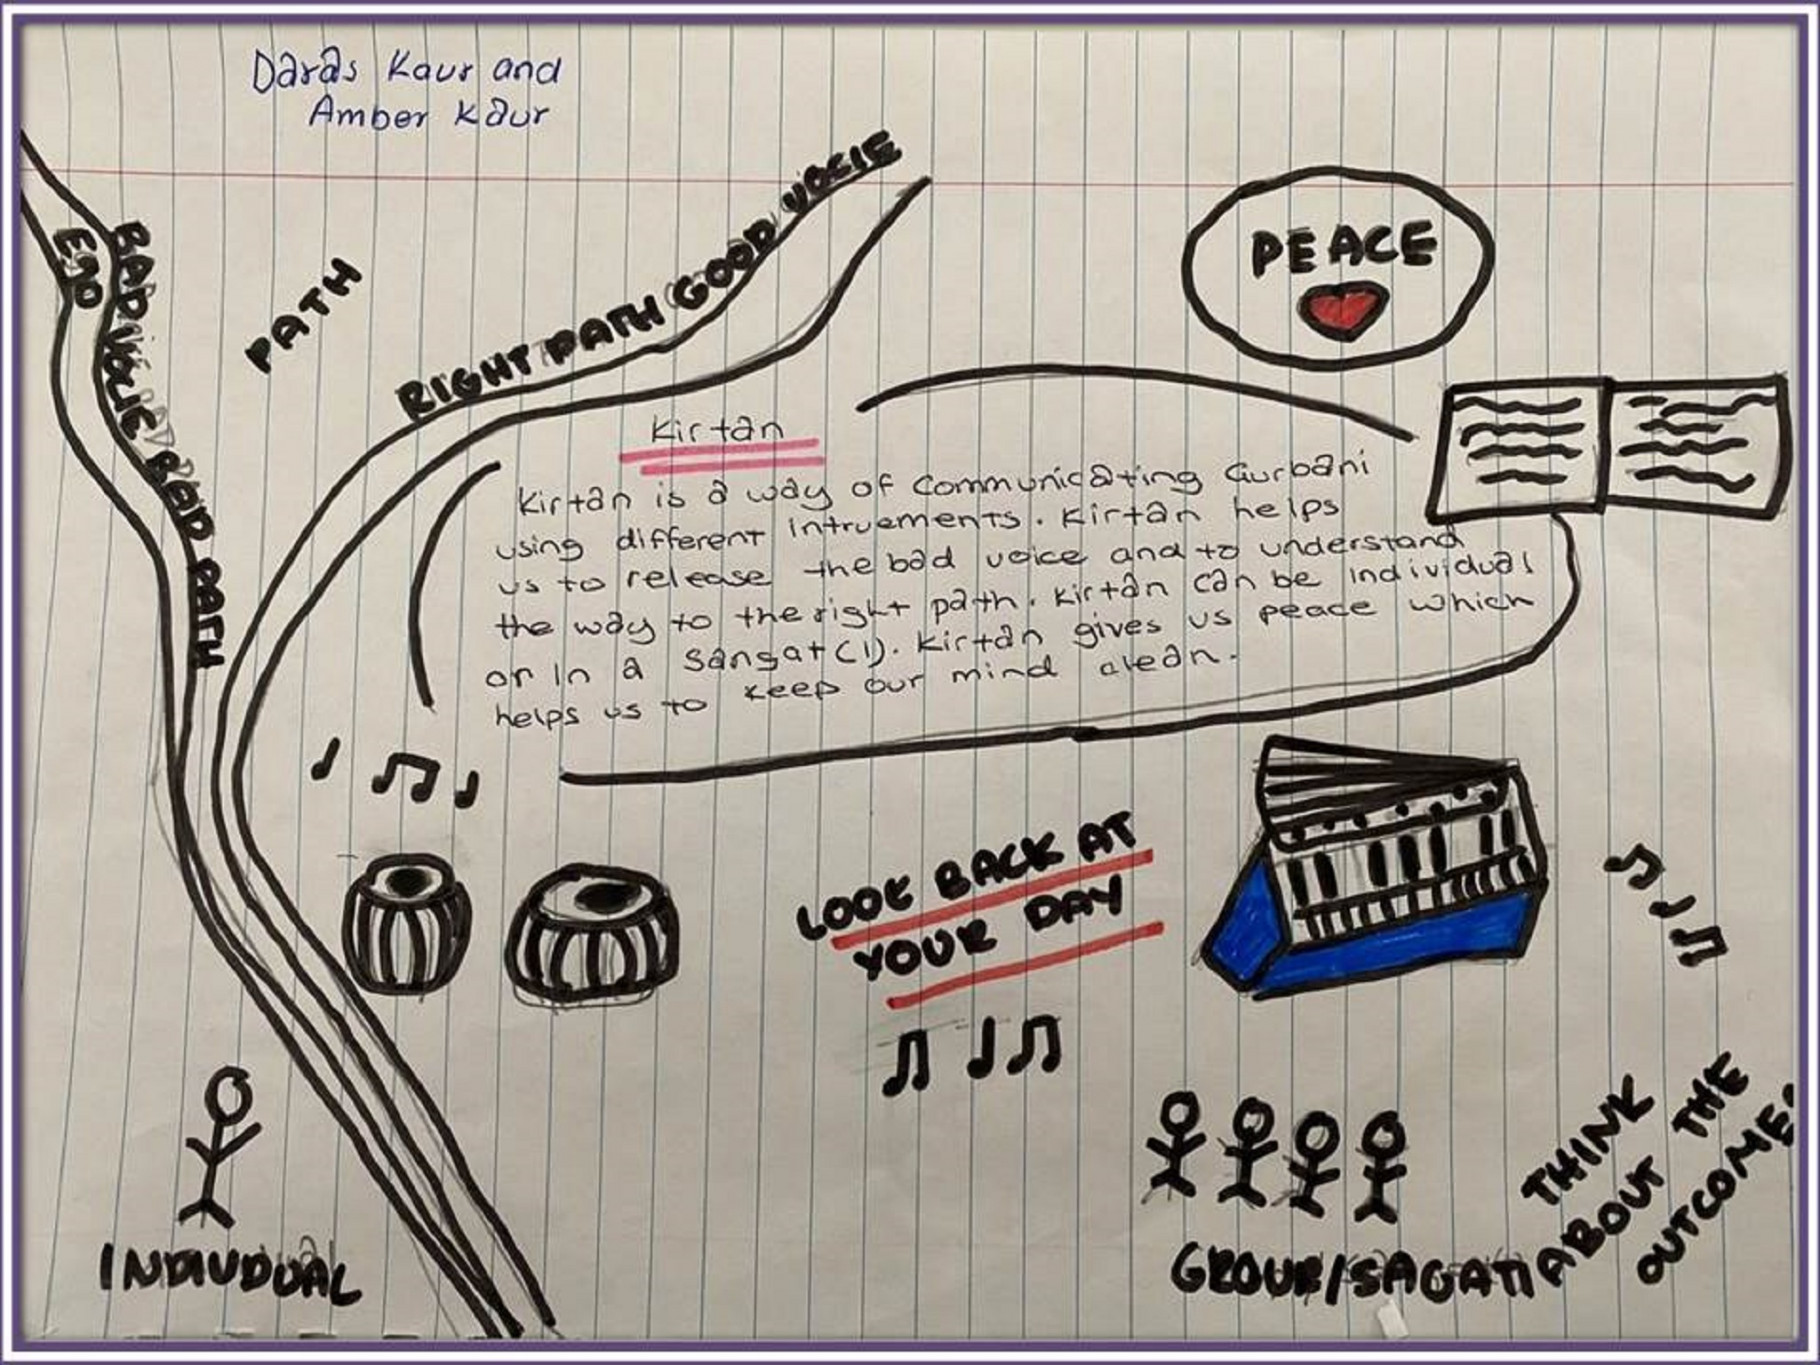 Daras Kaur and
Amber Kaur
EGO
BAD VOCIE BAD PATH
PATH
RIGHT PATH GOOD VOCIE
PEACE
Kirtan
Kirtan is a way of communicating Gurbani
using different intruements. Kirtan helps
us to release the bad voice and to understand
the way to the right path. Kirtan can be individual
or in a Sangat (1). Kirtan gives us peace which
helps us to keep our mind clean.
LOOK BACK AT
YOUR DAY
INDIVUDUAL
GROUP/SAGATI
THINK
ABOUT THE
OUTCOME